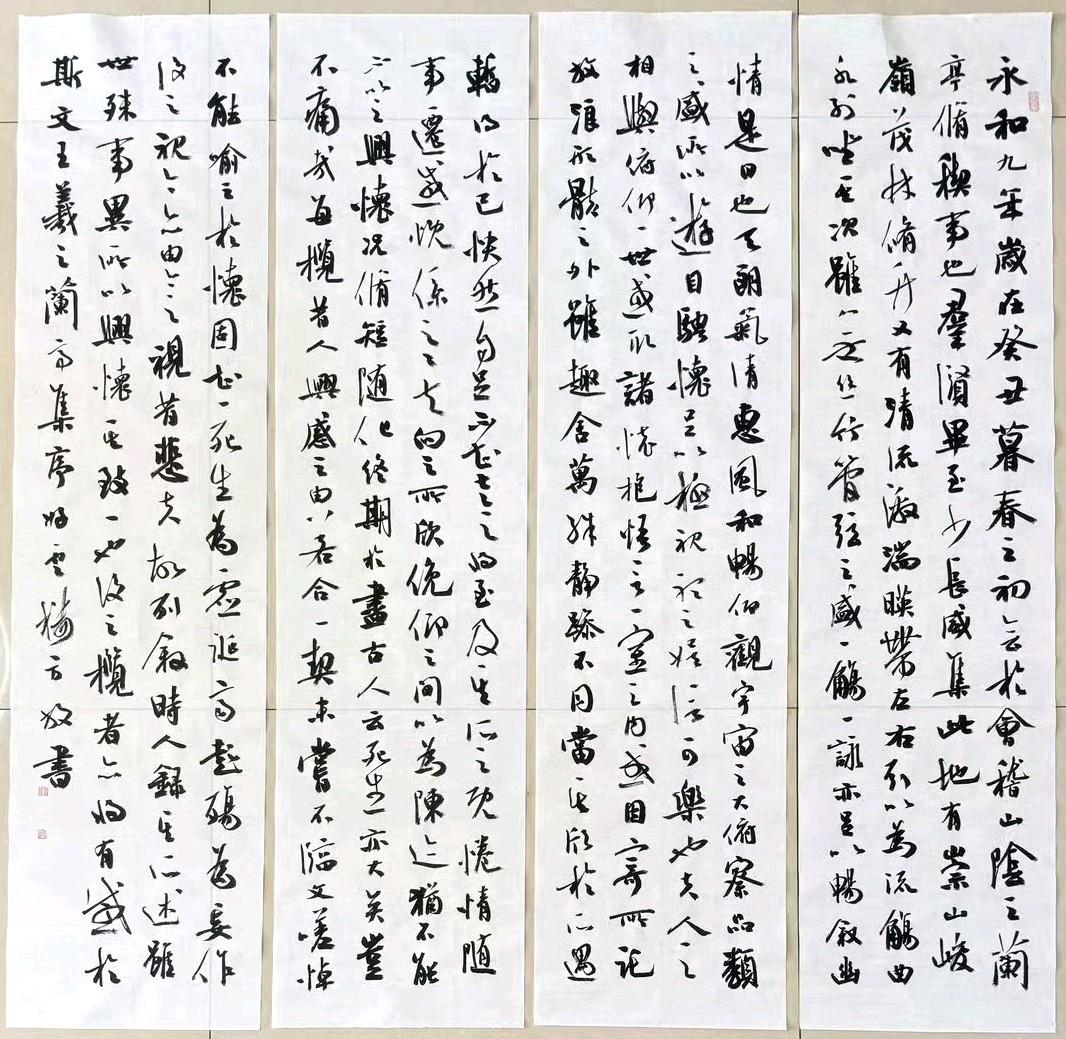 永和九年歲在癸丑暮春之初會於會稽山陰之蘭
亭脩稧事也羣賢畢至少長咸集此地有崇山峻
嶺茂林脩竹又有清流激湍暎帶左右引以為流觴曲
水列坐其次雖無絲竹管弦之盛一觴一詠亦足以暢叙幽
情是日也天朗氣清惠風和暢仰觀宇宙之大俯察品類
之盛所以遊目騁懷足以極視聽之娛信可樂也夫人之
相與俯仰一世或取諸懷抱悟言一室之內或因寄所託
放浪形骸之外雖趣舍萬殊靜躁不同當其欣於所遇
暫得於己快然自足不知老之將至及其所之既惓情隨
事遷感慨係之矣向之所欣俛仰之間以為陳迹猶不能
不以之興懷況脩短隨化終期於盡古人云死生亦大矣豈
不痛哉每攬昔人興感之由若合一契未嘗不臨文嗟悼
不能喻之於懷固知一死生為虛誕齊彭殤為妄作
後之視今亦由今之視昔悲夫故列叙時人錄其所述雖
世殊事異所以興懷其致一也後之攬者亦將有感於
斯文王羲之蘭亭集序 楊方放書